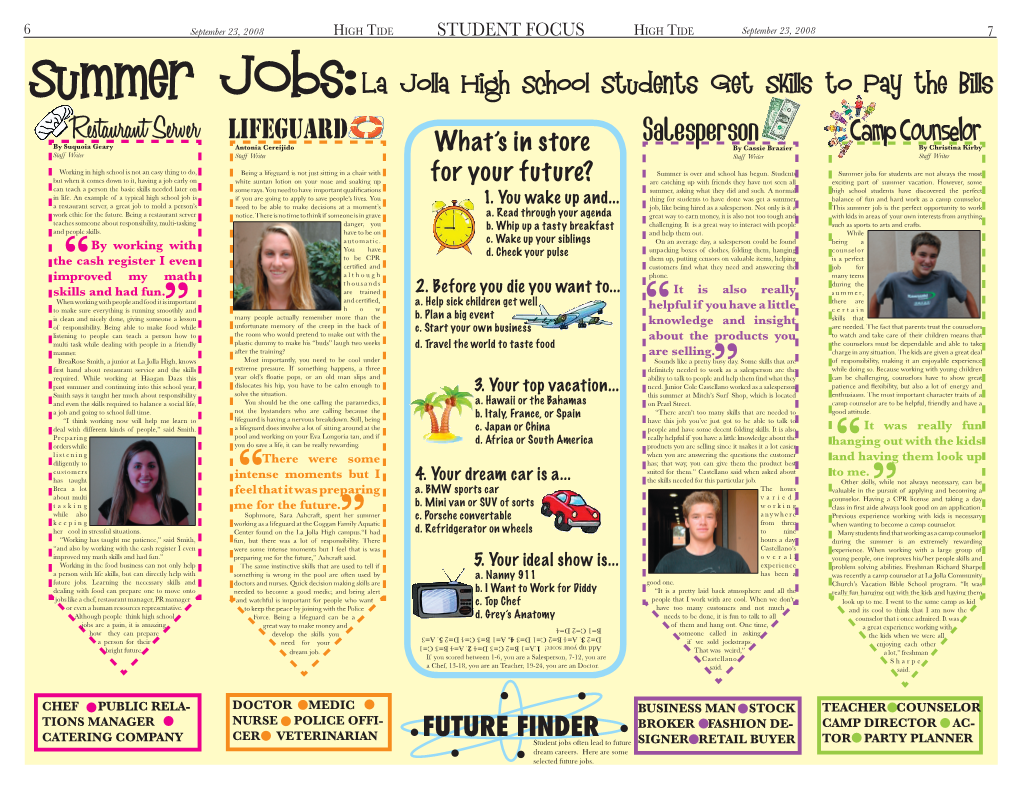 6
September 23, 2008
High Tide
STUDENT FOCUS
High Tide
September 23, 2008
7
Summer Jobs: La Jolla High School students Get Skills to Pay the Bills
Restaurant Server
By Suquoia Geary
Staff Writer
Working in high school is not an easy thing to do,
but when it comes down to it, having a job early on
can teach a person the basic skills needed later on
in life. An example of a typical high school job is
a restaurant server, a great job to mold a person's
work ethic for the future. Being a restaurant server
teaches someone about responsibility, multi-tasking
and people skills.
“By working with
the cash register I even
improved my math
skills and had fun.”
When working with people and food it is important
to make sure everything is running smoothly and
is clean and nicely done, giving someone a lesson
of responsibility. Being able to make food while
listening to people can teach a person how to
multi task while dealing with people in a friendly
manner.
BreaRose Smith, a junior at La Jolla High, knows
first hand about restaurant service and the skills
required. While working at Haagan Dazs this
past summer and continuing into this school year,
Smith says it taught her much about responsibility
and even the skills required to balance a social life,
a job and going to school full time.
“I think working now will help me learn to
deal with different kinds of people,” said Smith.
Preparing
orders while
listening
diligently to
customers
has taught
Brea a lot
about multi
tasking
while also
keeping
her cool in stressful situations.
“Working has taught me patience,” said Smith,
“and also by working with the cash register I even
improved my math skills and had fun.”
Working in the food business can not only help
a person with life skills, but can directly help with
future jobs. Learning the necessary skills and
dealing with food can prepare one to move onto
jobs like a chef, restaurant manager, PR manager
or even a human resources representative.
Although people think high school
jobs are a pain, it is amazing
how they can prepare
a person for their
bright future.
CHEF PUBLIC RELA-
TIONS MANAGER
CATERING COMPANY
LIFEGUARD
Antonia Cereijido
Staff Write
Being a lifeguard is not just sitting in a chair with
white suntan lotion on your nose and soaking up
some rays. You need to have important qualifications
if you are going to apply to save people's lives. You
need to be able to make decisions at a moment's
notice. There is no time to think if someone is in grave
danger, you
have to be on
automatic.
You have
to be CPR
certified and
although
thousands
are trained
and certified,
how
many people actually remember more than the
unfortunate memory of the creep in the back of
the room who would pretend to make out with the
plastic dummy to make his “buds” laugh two weeks
after the training?
Most importantly, you need to be cool under
extreme pressure. If something happens, a three
year old's floatie pops, or an old man slips and
dislocates his hip, you have to be calm enough to
solve the situation.
You should be the one calling the paramedics,
not the bystanders who are calling because the
lifeguard is having a nervous breakdown. Still, being
a lifeguard does involve a lot of sitting around at the
pool and working on your Eva Longoria tan, and if
you do save a life, it can be really rewarding.
“There were some
intense moments but I
feel that it was preparing
me for the future.”
Sophmore, Sara Ashcraft, spent her summer
working as a lifeguard at the Coggan Family Aquatic
Center found on the La Jolla High campus.“I had
fun, but there was a lot of responsibility. There
were some intense moments but I feel that is was
preparing me for the future,” Ashcraft said.
The same instinctive skills that are used to tell if
something is wrong in the pool are often used by
doctors and nurses. Quick decision making skills are
needed to become a good medic; and being alert
and watchful is important for people who want
to keep the peace by joining with the Police
Force. Being a lifeguard can be a
great way to make money and
develop the skills you
need for your
dream job.
DOCTOR MEDIC
NURSE POLICE OFFI-
CER VETERINARIAN
What's in store
for your future?
1. You wake up and...
a. Read through your agenda
b. Whip up a tasty breakfast
c. Wake up your siblings
d. Check your pulse
2. Before you die you want to...
a. Help sick children get well
b. Plan a big event
c. Start your own business
d. Travel the world to taste food
3. Your top vacation...
a. Hawaii or the Bahamas
b. Italy, France, or Spain
c. Japan or China
d. Africa or South America
4. Your dream car is a...
a. BMW sports car
b. Mini van or SUV of sorts
c. Porsche convertable
d. Refridgerator on wheels
5. Your ideal show is...
a. Nanny 911
b. I Want to Work for Diddy
c. Top Chef
d. Grey's Anatomy
Add up your score: 1.A=1 B=2 C=3 D=4 2. A=4 B=3 C=1
D=2 3. A=1 B=2 C=1 D=4 4. A=1 B=3 C=2 D=4 5. A=3
B=1 C=2 D=4
If you scored between 1-6, you are a Salesperson, 7-12, you are
a Chef, 13-18, you are an Teacher, 19-24, you are an Doctor.
FUTURE FINDER
Student jobs often lead to future
dream careers. Here are some
selected future jobs.
Salesperson
By Cassie Brazier
Staff Writer
Summer is over and school has begun. Students
are catching up with friends they have not seen all
summer, asking what they did and such. A normal
thing for students to have done was get a summer
job, like being hired as a salesperson. Not only is it a
great way to earn money, it is also not too tough and
challenging. It is a great way to interact with people
and help them out.
On an average day, a salesperson could be found
unpacking boxes of clothes, folding them, hanging
them up, putting censors on valuable items, helping
customers find what they need and answering the
phone.
“It is also really
helpful if you have a little
knowledge and insight
about the products you
are selling.”
Sounds like a pretty busy day. Some skills that are
definitely needed to work as a salesperson are the
ability to talk to people and help them find what they
need. Junior Cole Castellano worked as a salesperson
this summer at Mitch's Surf Shop, which is located
on Pearl Street.
“There aren't too many skills that are needed to
have this job you've just got to be able to talk to
people and have some decent folding skills. It is also
really helpful if you have a little knowledge about the
products you are selling since it makes it a lot easier
when you are answering the questions the customer
has; that way, you can give them the product best
suited for them.” Castellano said when asked about
the skills needed for this particular job.
The hours
varied,
working
anywhere
from three
to nine
hours a day.
Castellano's
overall
experience
has been a
good one.
“It is a pretty laid back atmosphere and all the
people that I work with are cool. When we don't
have too many customers and not much
needs to be done, it is fun to talk to all
of them and hang out. One time,
someone called in asking
if we sold jockstraps.
That was weird,”
Castellano
said.
BUSINESS MAN STOCK
BROKER FASHION DE-
SIGNER RETAIL BUYER
Camp Counselor
By Christina Kirby
Staff Writer
Summer jobs for students are not always the most
exciting part of summer vacation. However, some
high school students have discovered the perfect
balance of fun and hard work as a camp counselor.
This summer job is the perfect opportunity to work
with kids in areas of your own interests from anything
such as sports to arts and crafts.
While
being a
counselor
is a perfect
job for
many teens
during the
summer,
there are
certain
skills that
are needed. The fact that parents trust the counselors
to watch and take care of their children means that
the counselors must be dependable and able to take
charge in any situation. The kids are given a great deal
of responsibility, making it an enjoyable experience
while doing so. Because working with young children
can be challenging, counselors have to show great
patience and flexibility, but also a lot of energy and
enthusiasm. The most important character traits of a
camp counselor are to be helpful, friendly and have a
good attitude.
“It was really fun
hanging out with the kids
and having them look up
to me.”
Other skills, while not always necessary, can be
valuable in the pursuit of applying and becoming a
counselor. Having a CPR license and taking a day
class in first aide always look good on an application.
Previous experience working with kids is necessary
when wanting to become a camp counselor.
Many students find that working as a camp counselor
during the summer is an extremely rewarding
experience. When working with a large group of
young people, one improves his/her people skills and
problem solving abilities. Freshman Richard Sharpe
was recently a camp counselor at La Jolla Community
Church's Vacation Bible School program. “It was
really fun hanging out with the kids and having them
look up to me. I went to the same camp as kid
and its cool to think that I am now the
counselor that i once admired. It was
a great experience working with
the kids when we were all
enjoying each other
a lot,” freshman
Sharpe
said.
TEACHER COUNSELOR
CAMP DIRECTOR AC-
TOR PARTY PLANNER